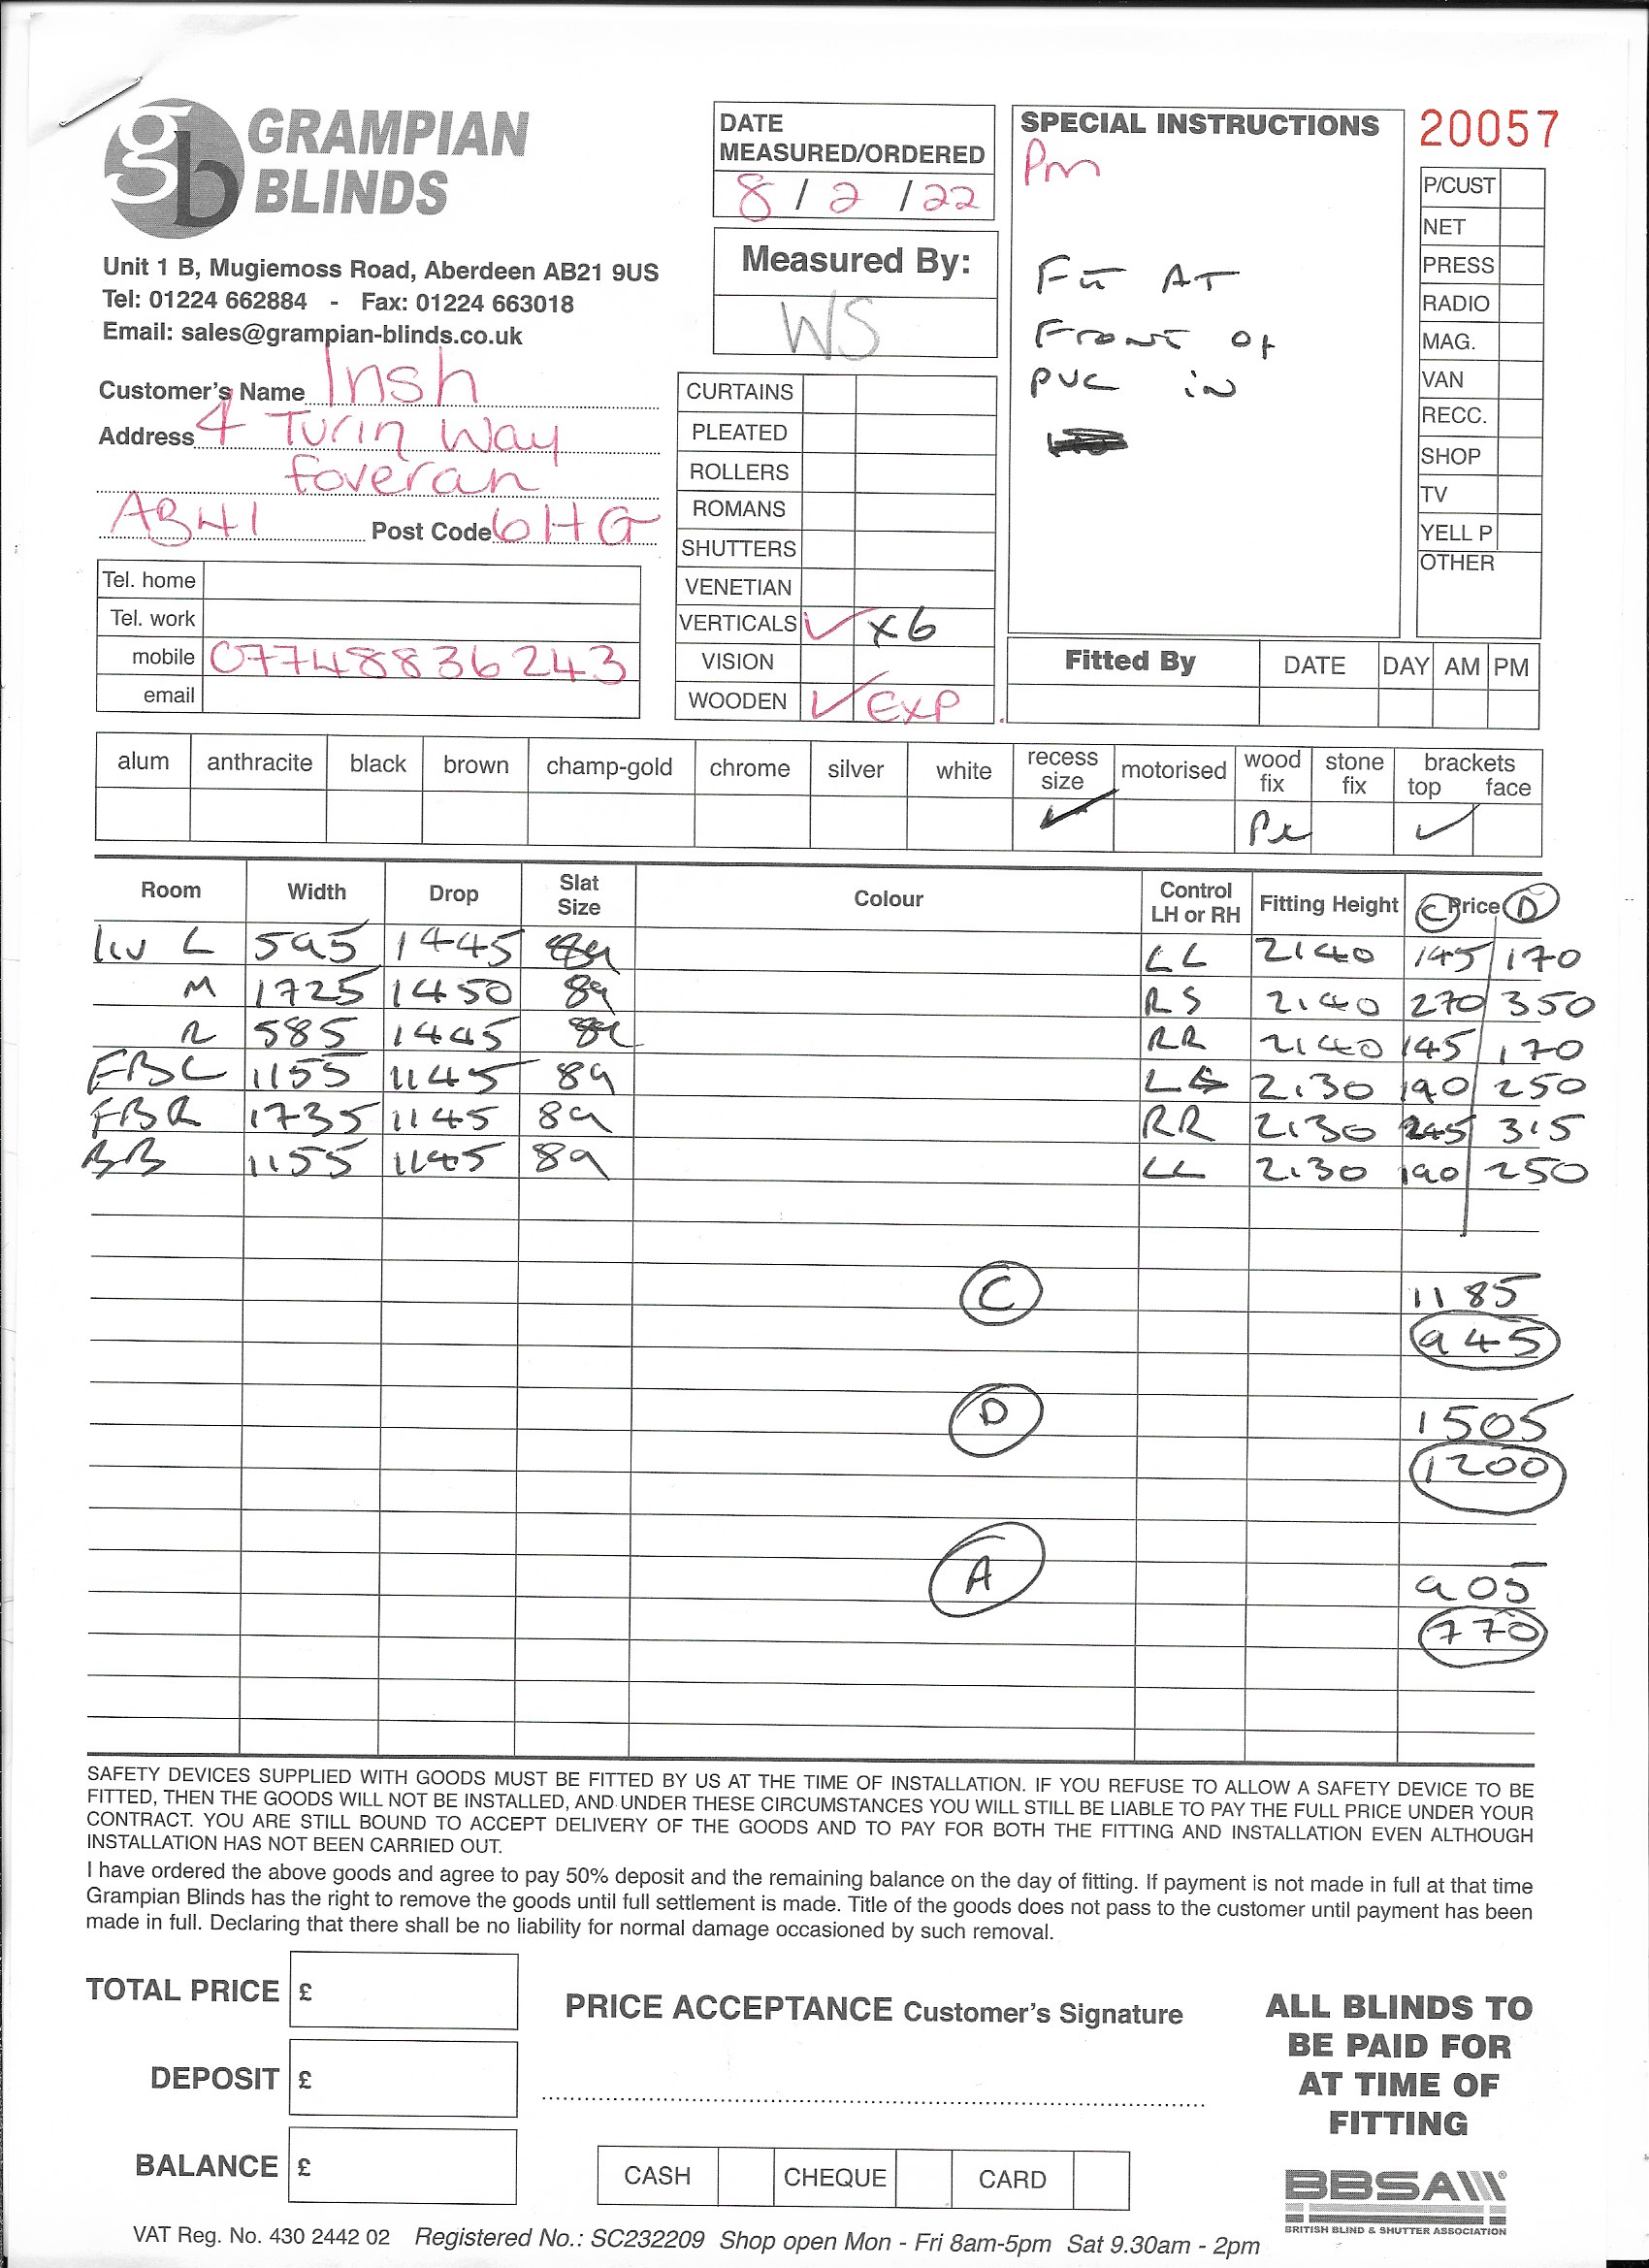 gb GRAMPIAN
BLINDS
Unit 1 B, Mugiemoss Road, Aberdeen AB21 9US
Tel: 01224 662884 - Fax: 01224 663018
Email: sales@grampian-blinds.co.uk
DATE
MEASURED/ORDERED
8 / 2 / 22
Measured By:
WS
SPECIAL INSTRUCTIONS
Pm
Fit AT
FRONT OF
PVC IN
20057
P/CUST
NET
PRESS
RADIO
MAG.
VAN
RECC.
SHOP
TV
YELL P
OTHER
Customer's Name Insh
Address 4 Turin Way
Foveran
AB41 Post Code 6HG
Tel. home
Tel. work
mobile 07748836243
email
CURTAINS
PLEATED
ROLLERS
ROMANS
SHUTTERS
VENETIAN
VERTICALS ✓ x6
VISION
WOODEN ✓ EXP
Fitted By DATE DAY AM PM
alum anthracite black brown champ-gold chrome silver white recess size motorised wood fix stone fix brackets top face
✓ ✓
Room Width Drop Slat Size Colour Control LH or RH Fitting Height C Price D
liv L 595 1445 89 LL 2140 145 170
M 1725 1450 89 RS 2140 270 350
R 585 1445 89 RR 2140 145 170
FBL 1155 1145 89 2130 190 250
FBR 1735 1145 89 RR 2130 245 315
BB 1155 1145 89 LL 2130 190 250
C 1185
945
D 1505
1200
A 905
770
SAFETY DEVICES SUPPLIED WITH GOODS MUST BE FITTED BY US AT THE TIME OF INSTALLATION. IF YOU REFUSE TO ALLOW A SAFETY DEVICE TO BE
FITTED, THEN THE GOODS WILL NOT BE INSTALLED, AND UNDER THESE CIRCUMSTANCES YOU WILL STILL BE LIABLE TO PAY THE FULL PRICE UNDER YOUR
CONTRACT. YOU ARE STILL BOUND TO ACCEPT DELIVERY OF THE GOODS AND TO PAY FOR BOTH THE FITTING AND INSTALLATION EVEN ALTHOUGH
INSTALLATION HAS NOT BEEN CARRIED OUT.
I have ordered the above goods and agree to pay 50% deposit and the remaining balance on the day of fitting. If payment is not made in full at that time
Grampian Blinds has the right to remove the goods until full settlement is made. Title of the goods does not pass to the customer until payment has been
made in full. Declaring that there shall be no liability for normal damage occasioned by such removal.
TOTAL PRICE £
DEPOSIT £
BALANCE £
PRICE ACCEPTANCE Customer's Signature
CASH CHEQUE CARD
ALL BLINDS TO
BE PAID FOR
AT TIME OF
FITTING
BBSA
BRITISH BLIND & SHUTTER ASSOCIATION
VAT Reg. No. 430 2442 02 Registered No.: SC232209 Shop open Mon - Fri 8am-5pm Sat 9.30am - 2pm